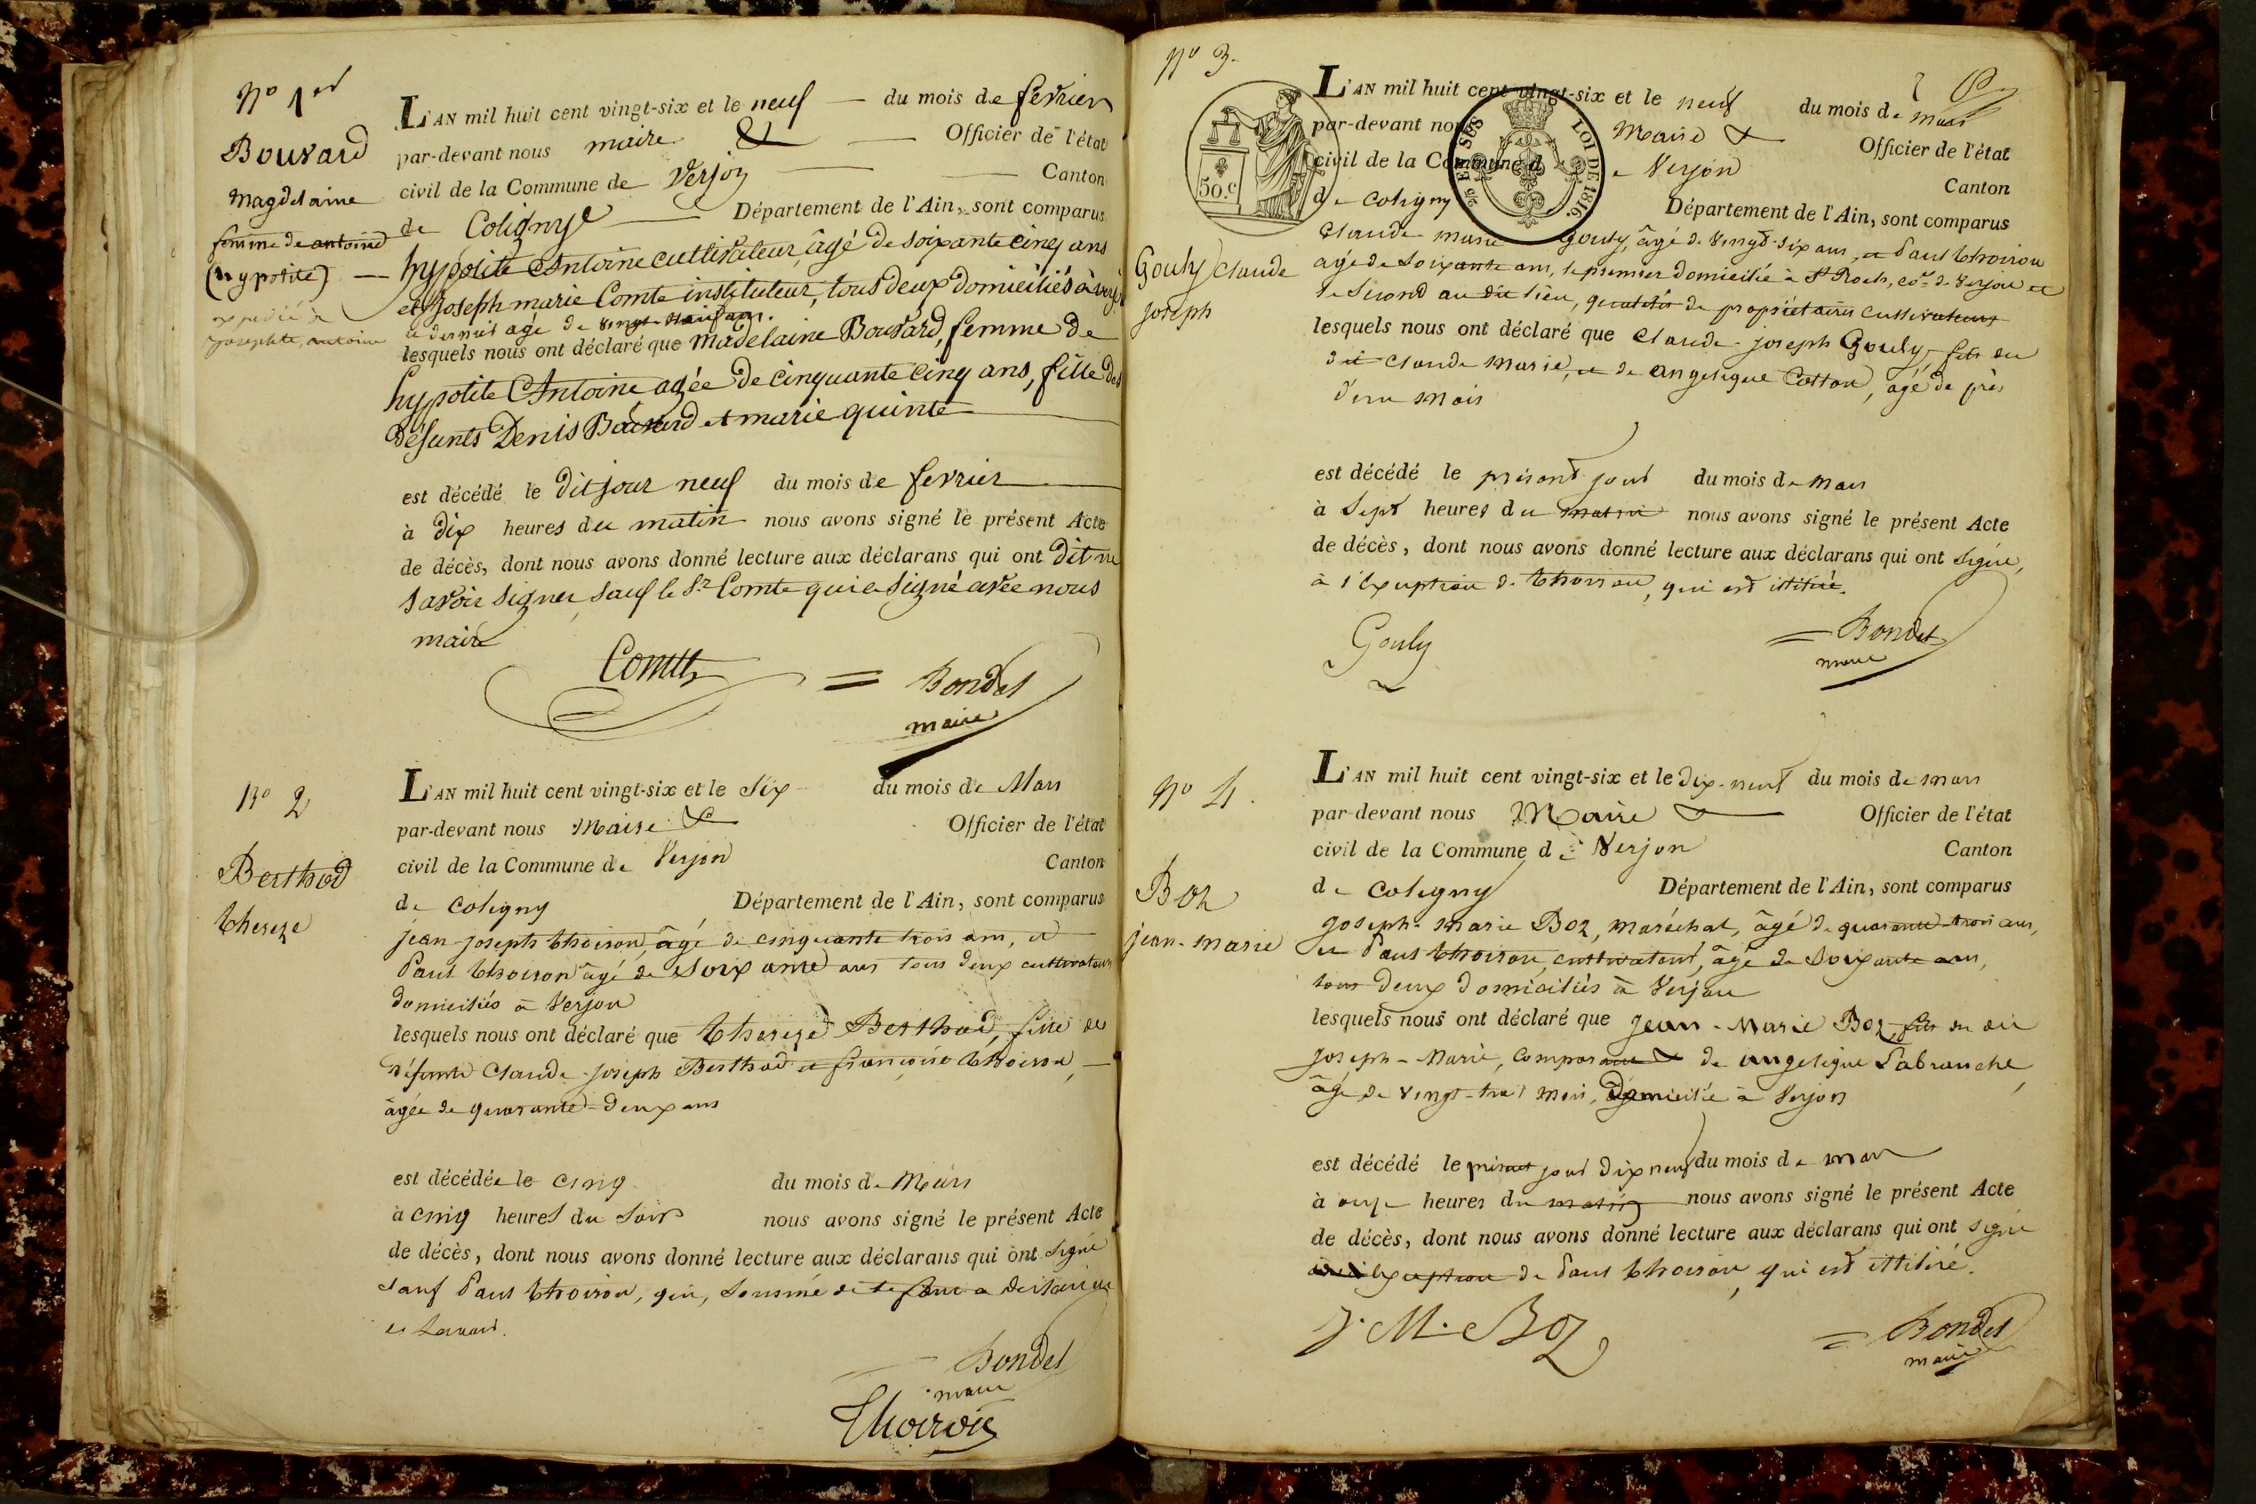 N.o 1er
Bouvard
Magdelaine
femme de antoine
(hypolite)
expédié à
L'AN mil huit cent vingt-six et le neuf du mois de fevrier
par-devant nous maire & Officier de l'état
civil de la Commune de Verjon Canton
de Coligny Département de l'Ain, sont comparus
hypolite Antoine cultivateur, âgé de soixante cinq ans
et joseph marie Comte instituteur, tous deux domiciliés à verjon
ce dernier agé de vingt neuf ans.
lesquels nous ont déclaré que Madelaine Bouvard, femme de
hypolite Antoine agée de cinquante cinq ans, fille des
défunts Denis Bouvard et marie quinte
est décédé le dit jour neuf du mois de fevrier
à dix heures du matin nous avons signé le présent Acte
de décès, dont nous avons donné lecture aux déclarans qui ont dit ne
savoir signer, sauf le Sr Comte qui a signé avec nous
maire
Comte
= Bondet
maire
No 2
Berthod
thereze
L'AN mil huit cent vingt-six et le six du mois de Mars
par-devant nous Maire & Officier de l'état
civil de la Commune de Verjon Canton
de Coligny Département de l'Ain, sont comparus
jean-joseph thoiron, âgé de cinquante trois ans, et
Paul thoiron âgé de soixante ans tous deux cultivateurs
domiciliés à Verjon
lesquels nous ont déclaré que thereze Berthod, fille des
défunts Claude-joseph Berthod et françoise thoiron,
âgée de quarante-deux ans
est décédée le cinq du mois de Mars
à cinq heures du soir nous avons signé le présent Acte
de décès, dont nous avons donné lecture aux déclarans qui ont signé
sauf Paul thoiron, qui, sommé de le faire a
Bondet
maire
Thoiron
No 3.
Gouly Claude
joseph
50.c
25 EN SUS
LOI DE 1816.
L'AN mil huit cent vingt-six et le neuf du mois de mars
par-devant nous Maire & Officier de l'état
civil de la Commune de Verjon Canton
de Coligny Département de l'Ain, sont comparus
Claude marie Gouly, âgé de vingt-six ans, et Paul thoiron
agé de soixante ans, le premier domicilié à St Roch, co.ne de Verjon et
le second au dit lieu, qualités de propriétaires cultivateurs
lesquels nous ont déclaré que Claude-joseph Gouly, fils du
dit Claude Marie, et de angelique Cotton, agé de près
d'un mois
est décédé le présent jour du mois de Mars
à sept heures du matin nous avons signé le présent Acte
de décès, dont nous avons donné lecture aux déclarans qui ont signé,
à l'exception de thoiron, qui est illitéré.
Gouly
= Bondet
maire
No 4.
Boz
jean-marie
L'AN mil huit cent vingt-six et le dix-neuf du mois de mars
par-devant nous Maire & Officier de l'état
civil de la Commune de Verjon Canton
de Coligny Département de l'Ain, sont comparus
joseph-marie Boz, maréchal, âgé de quarante-trois ans,
et Paul thoiron, cultivateur, âgé de soixante ans,
tous deux domiciliés à Verjon
lesquels nous ont déclaré que jean-Marie Boz, fils du dit
joseph-Marie, comparant & de angelique Labranche,
âgé de vingt-trois mois, domicilié à Verjon
est décédé le présent jour dix neuf du mois de mars
à onze heures du matin nous avons signé le présent Acte
de décès, dont nous avons donné lecture aux déclarans qui ont signé
à l'exception de Paul thoiron, qui est illitéré.
J. M. Boz
= Bondet
maire